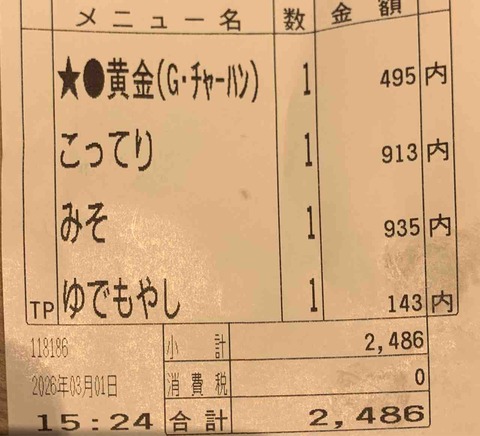 メニュー名 数 金額
★●黄金(G・チャーハン) 1 495 内
こってり 1 913 内
みそ 1 935 内
TP ゆでもやし 1 143 内
118186 小計 2,486
2026年03月01日 消費税 0
15:24 合計 2,486